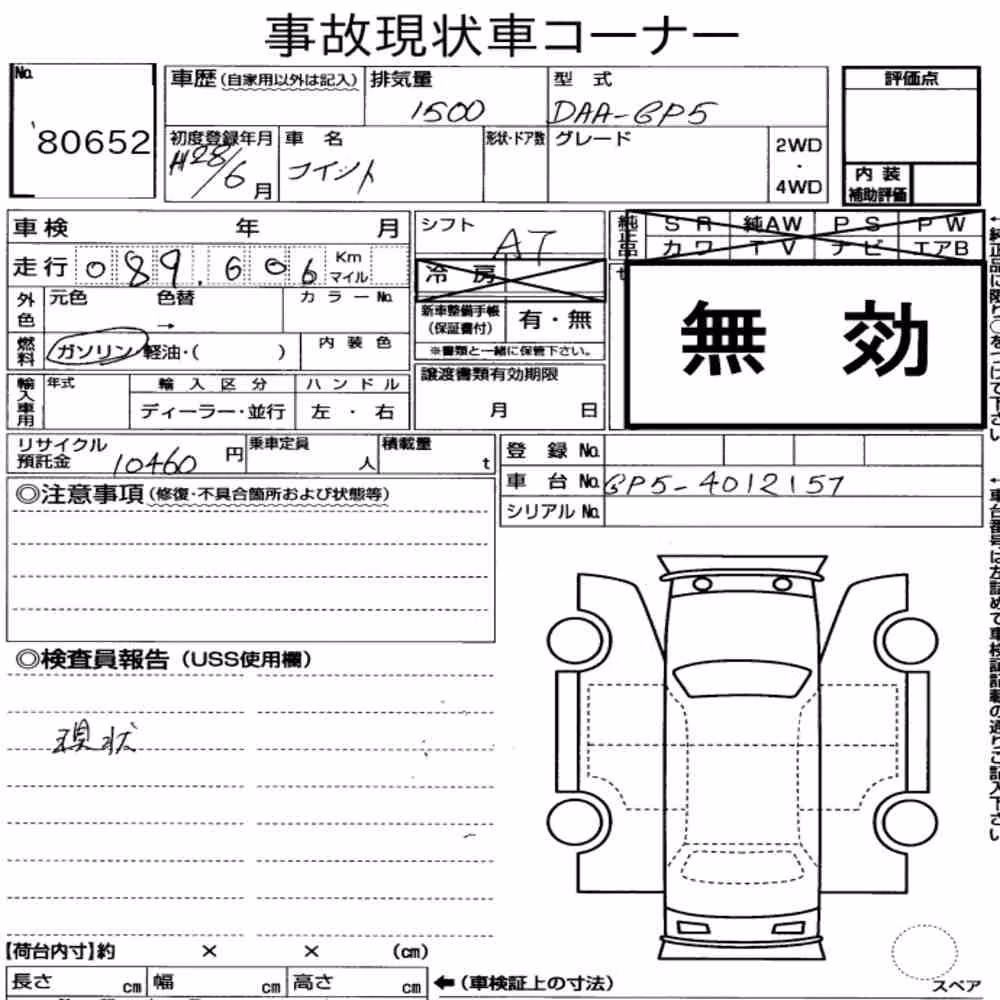 事故現状車コーナー
No. 80652
車歴(自家用以外は記入) 排気量 1500 型式 DAA-GP5
評価点
初度登録年月 H28/6月 車名 フィット 形状・ドア数 グレード 2WD・4WD
内装補助評価
車検 年 月
シフト AT
純正品 SR 純AW PS PW
カワ TV ナビ エアB
走行 089,606 Km マイル
冷房
外色 元色 色替 → カラーNo.
新車整備手帳(保証書付) 有・無
※書類と一緒に保管下さい。
無効
燃料 ガソリン・軽油・( ) 内装色
輸入車用 年式 輸入区分 ハンドル
ディーラー・並行 左・右
譲渡書類有効期限
月 日
リサイクル預託金 10460円 乗車定員 人 積載量 t
登録No.
車台No. GP5-4012157
シリアルNo.
◎注意事項(修復・不具合箇所および状態等)
◎検査員報告(USS使用欄)
現状
←純正品に限り○をつけて下さい
←車台番号は左詰めで車検証記載の通りご記入下さい
【荷台内寸】約 × × (cm)
長さ cm 幅 cm 高さ cm ←(車検証上の寸法)
スペア